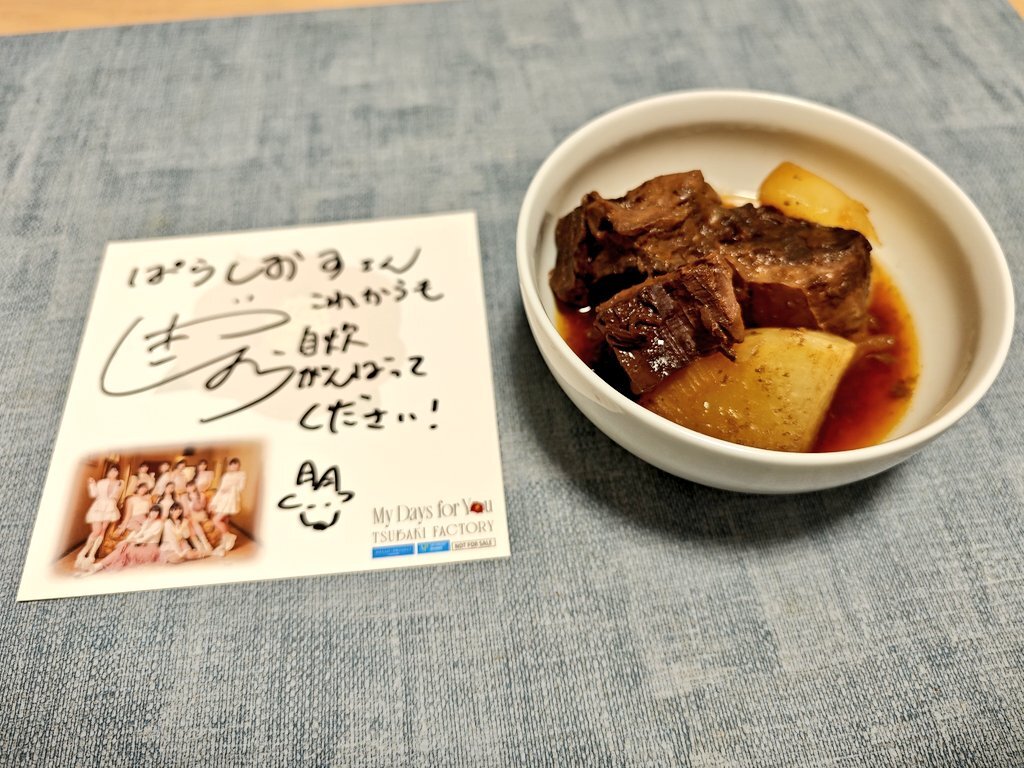 ぱらしおすさん
これからも
自炊
がんばって
ください！
My Days for You
TSUBAKI FACTORY
NOT FOR SALE